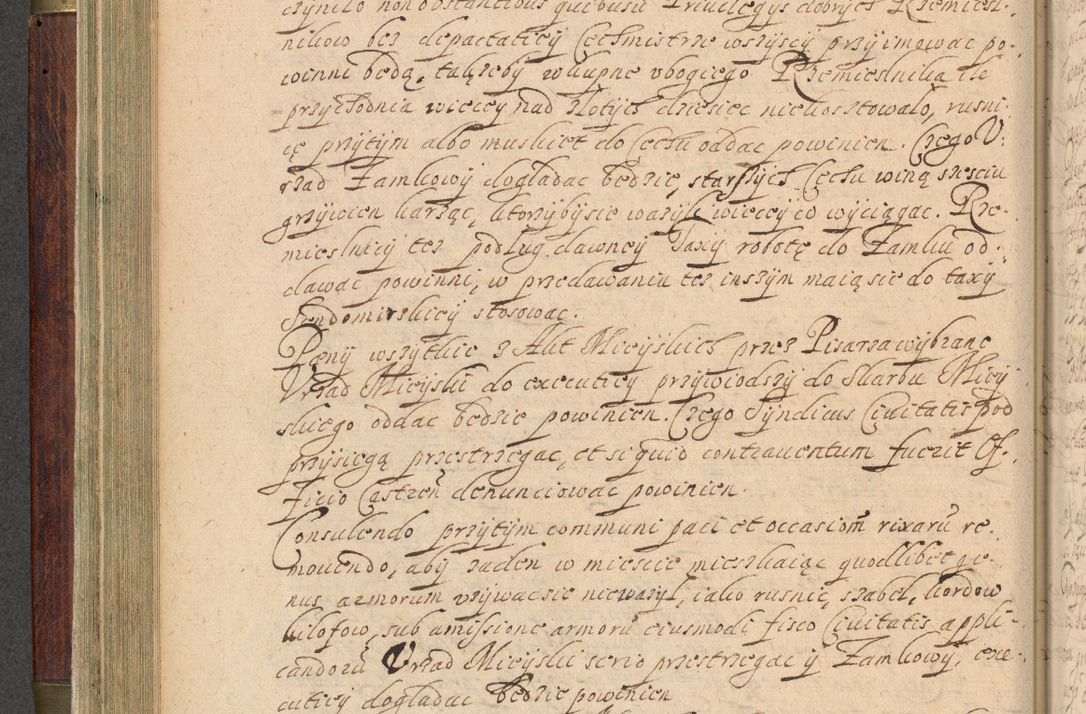 czynilo non obstantibus quibusu Priuilegys dobrych Rzemiesl-
nikow bez depactatiey Cechmistrze wszyscy przyimowac po-
winni będą, takżeby wkupne vbogiego Rzemieslnika ile
przychodnia wiecey nad złotych dziesiec niekosztowało, rusni-
cę przytym albo muskiet do Cechu oddac powinien. Czego V-
rzad Zamkowy dogladac bedzie, starszych Cechu winą szesciu
grzywien karząc, ktorzybysie wazyli wiecey co wyciągac. Rze-
mieslnicy tez podlug dawney Taxy robotę do Zamku od-
dawac powinni, w przedawaniu tez inszym maią sie do taxy
Sendomirskiey stosowac.
Pæny wszytkie z Akt Mieyskich przez Pisarza wybrane
Vrzad Mieyski do executiey przywiodszy do Skarbu Miey
skiego oddac bedzie powinien. Czego Syndicus Ciuitatis pod
przysiegą przestrzegac, et si quid contrauentum fuerit Of-
ficio Castren denunciowac powinien.
Consulendo przytym communi paci et occasiom rixarū re-
mouendo, aby zaden w miescie mieszkaiąc quodlibet ge-
nus armorum vzywac sie niewazyl, iako rusnic, szabel, kordow
kilofow, sub amissione armorū eiusmodi fisco Ciuitatis appli-
candorū Vrzad Mieyski serio przestrzegac y Zamkowy, exe-
cutiey dogladac bedzie powinien